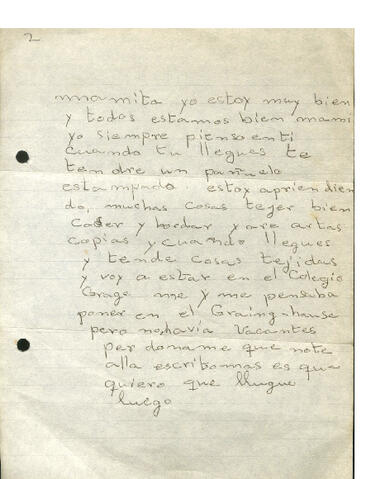 2
mamita yo estoy muy bien
y todos estamos bien mami
yo siempre pienso en ti
cuando tu llegues te
tendre un pañuelo
estampado. estoy apriendien
do, muchas cosas tejer bien
Coser y bordar y are artas
copias y cuando llegues
y tende cosas tejidas
y voy a estar en el Colegio
me y me pensaba
poner en el
pero no, havia Vacantes
per doname que note
alla escrito mas es que
quiero que llugue
luego